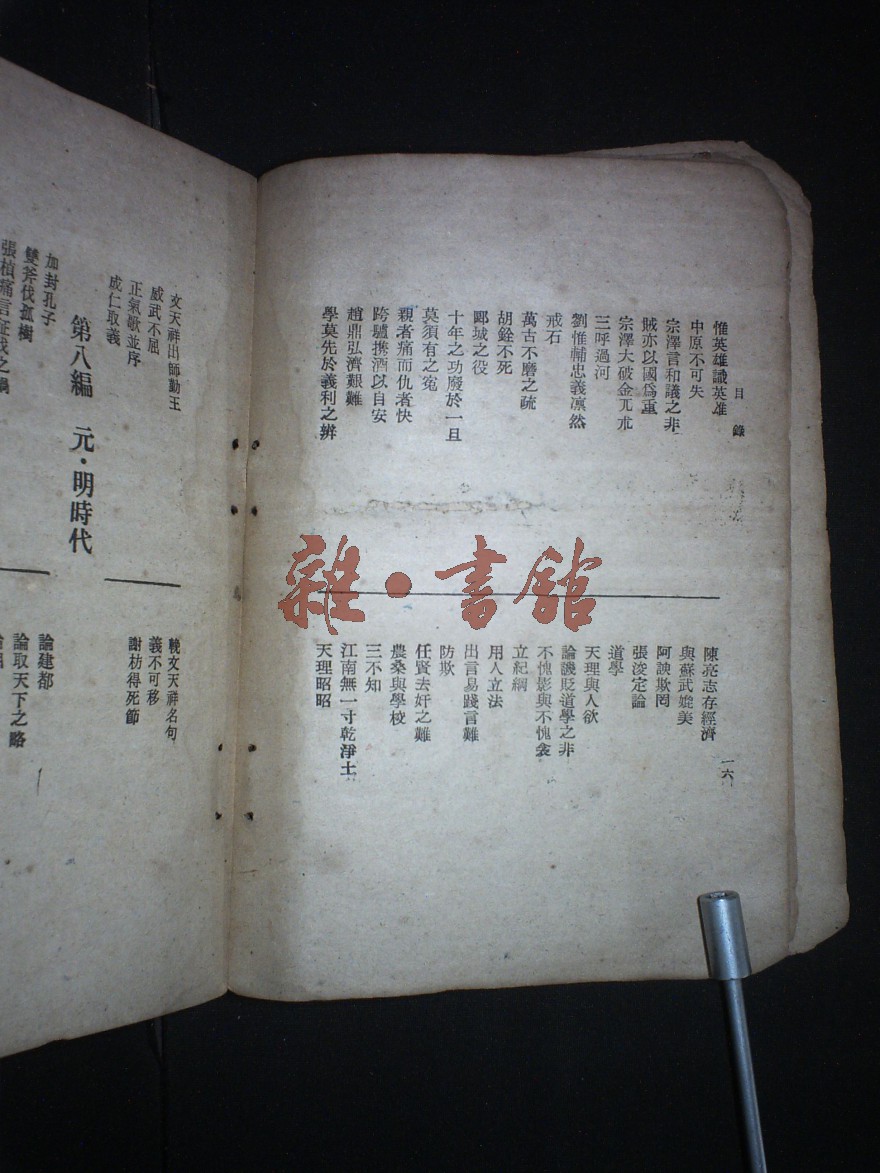 目錄
惟英雄識英雄
中原不可失
宗澤言和議之非
賊亦以國爲重
宗澤大破金兀朮
三呼過河
劉惟輔忠義凛然
戒石
萬古不磨之疏
胡銓不死
郾城之役
十年之功廢於一旦
莫須有之寃
親者痛而仇者快
跨驢携酒以自安
趙鼎弘濟艱難
學莫先於義利之辨
一六
陳亮志存經濟
與蘇武媲美
阿諛欺罔
張浚定論
道學
天理與人欲
論譏貶道學之非
不愧影與不愧衾
立紀綱
用人立法
出言易踐言難
防欺
任賢去奸之難
農桑與學校
三不知
江南無一寸乾淨土
天理昭昭
文天祥出師勤王
威武不屈
正氣歌並序
成仁取義
輓文天祥名句
義不可移
謝枋得死節
第八編 元·明時代
加封孔子
雙斧伐孤樹
張楨痛言征伐之禍
論建都
論取天下之略
雜·書舘